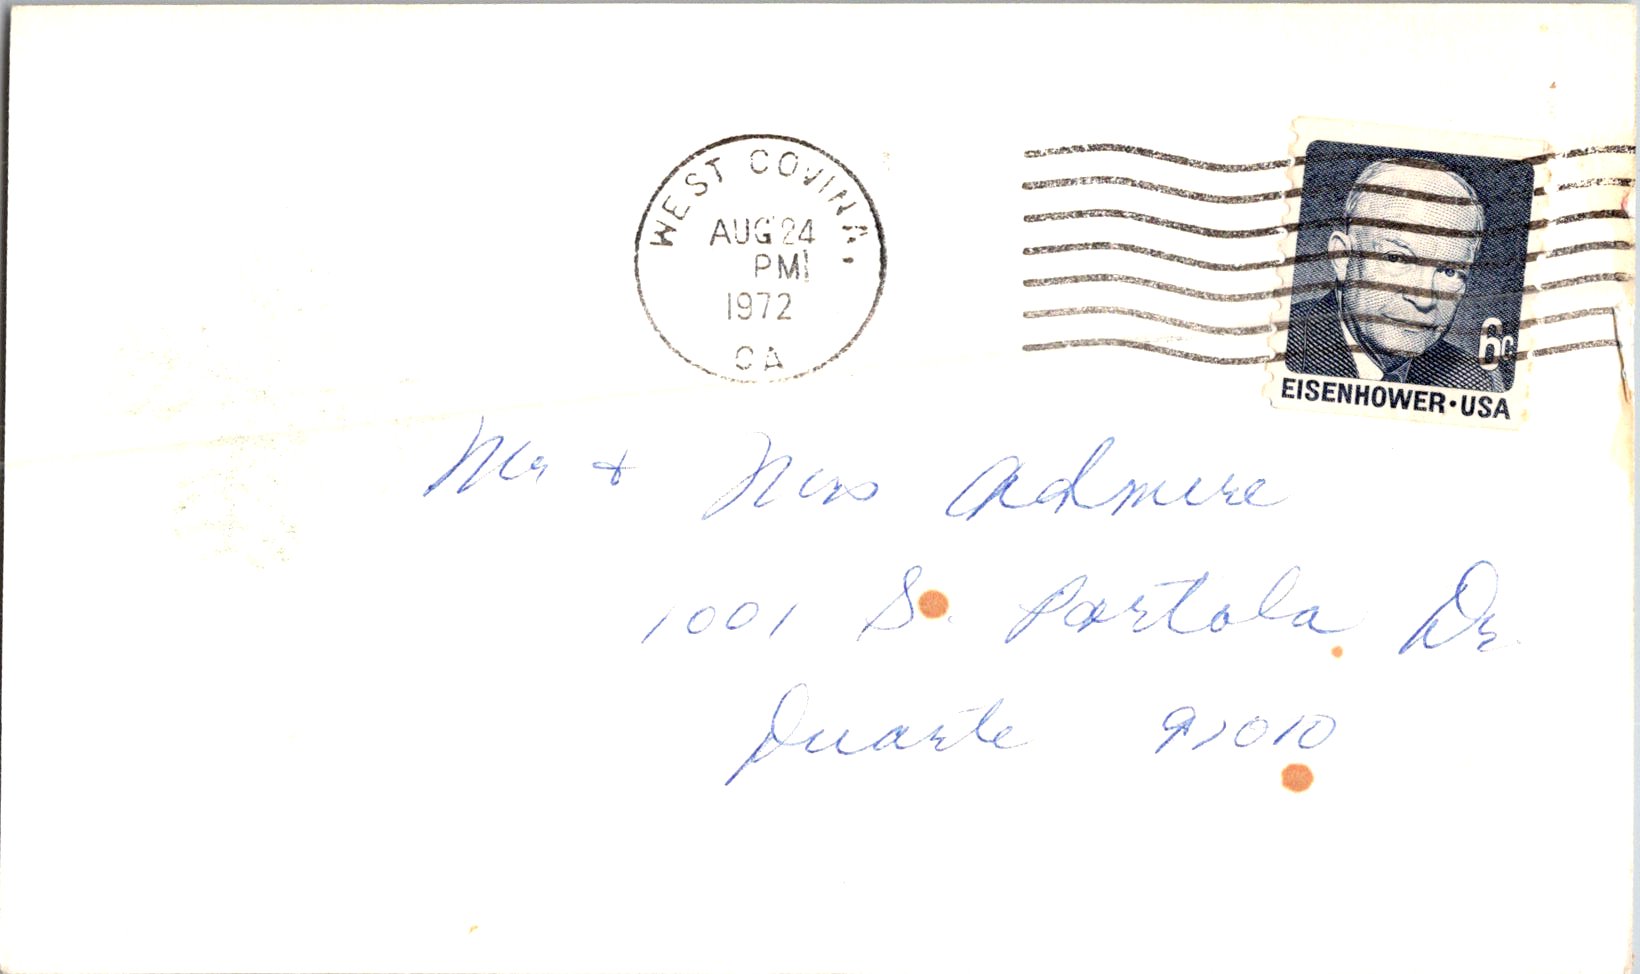 WEST COVINA,
AUG 24
PM
1972
CA
6c
EISENHOWER·USA
Mr & Mrs Admire
1001 S. Portola Dr.
Duarte 91010